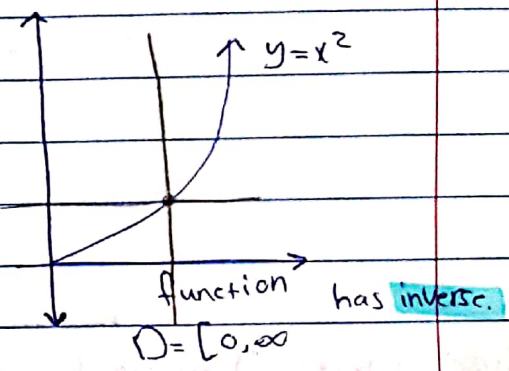 y=x²
function
has inverse.
D=[0,∞